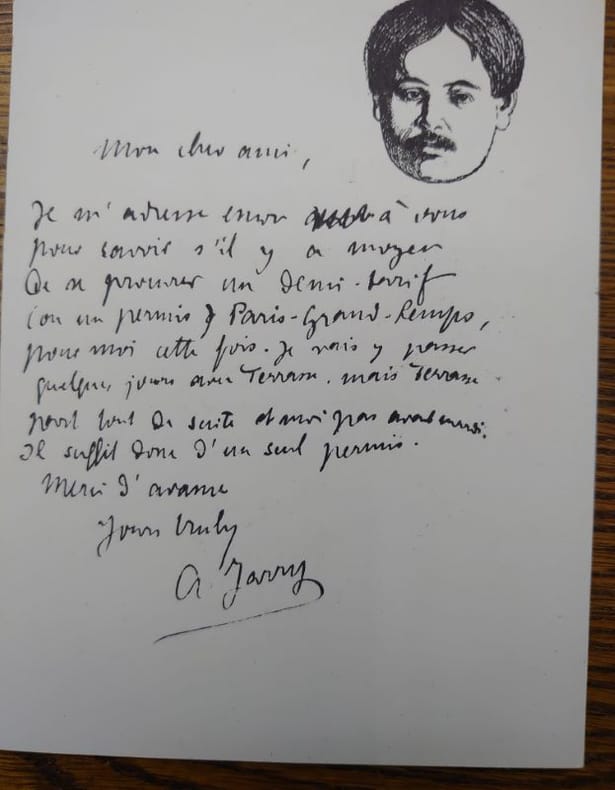 Mon cher ami,
Je m'adresse encor à vous
pour savoir s'il y a moyen
de se procurer un demi-tarif
(ou un permis) Paris-Grand-Lemps,
pour moi cette fois. Je vais y passer
quelques jours avec Terrasse. mais Terrasse
part tout de suite et moi pas avant mardi.
Il suffit donc d'un seul permis.
Merci d'avance
Yours truly
A. Jarry